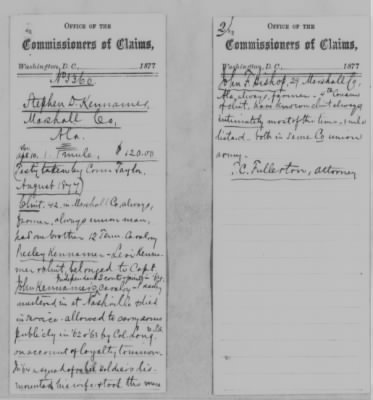 OFFICE OF THE
Commissioners of Claims,
Washington, D. C., 1877
No 5360
Stephen D. Kennamer,
Marshall Co,
Ala.
1 mule, $120.00
Testy taken by Comr Taylor,
August 1877
Clmt. 42. in Marshall Co, always,
farmer, always union man,
had one brother 12 Tenn. Cavalry
Kennamer - Levi Kenna-
mer & clmt, belonged to Capt.
Independent Scouts
John Kennamer's Cavalry -
mustered in at Nashville & died
in service - allowed to carry arms
publicly in '62 & '63 by Col. Long
on account of loyalty to union.
In '64 a squad of rebel soldiers dis-
mounted his wife & took the mare
2/
OFFICE OF THE
Commissioners of Claims,
Washington, D. C., 1877
John F. Bishop, 29, Marshall Co,
Ala, always, farmer - 4th Cousin
of clmt, have known clmt always
intimately most of the time - 1 mile
distant - both in same Co union
army.
C. Fullerton, attorney